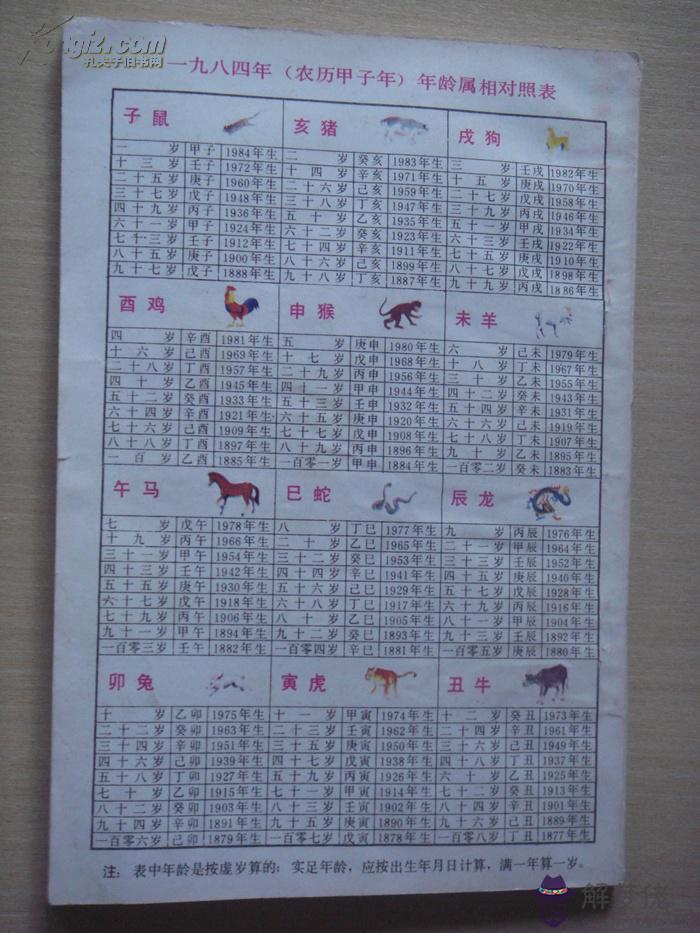 孔夫子旧书网
一九八四年（农历甲子年）年龄属相对照表
子鼠
二岁 甲子 1984年生
十三岁 壬子 1972年生
二十五岁 庚子 1960年生
三十七岁 戊子 1948年生
四十九岁 丙子 1936年生
六十一岁 甲子 1924年生
七十三岁 壬子 1912年生
八十五岁 庚子 1900年生
九十七岁 戊子 1888年生
亥猪
二岁 癸亥 1983年生
十四岁 辛亥 1971年生
二十六岁 己亥 1959年生
三十八岁 丁亥 1947年生
五十岁 乙亥 1935年生
六十二岁 癸亥 1923年生
七十四岁 辛亥 1911年生
八十六岁 己亥 1899年生
九十八岁 丁亥 1887年生
戌狗
三岁 壬戌 1982年生
十五岁 庚戌 1970年生
二十七岁 戊戌 1958年生
三十九岁 丙戌 1946年生
五十一岁 甲戌 1934年生
六十三岁 壬戌 1922年生
七十五岁 庚戌 1910年生
八十七岁 戊戌 1898年生
九十九岁 丙戌 1886年生
酉鸡
四岁 辛酉 1981年生
十六岁 己酉 1969年生
二十八岁 丁酉 1957年生
四十岁 乙酉 1945年生
五十二岁 癸酉 1933年生
六十四岁 辛酉 1921年生
七十六岁 己酉 1909年生
八十八岁 丁酉 1897年生
一百岁 乙酉 1885年生
申猴
五岁 庚申 1980年生
十七岁 戊申 1968年生
二十九岁 丙申 1956年生
四十一岁 甲申 1944年生
五十三岁 壬申 1932年生
六十五岁 庚申 1920年生
七十七岁 戊申 1908年生
八十九岁 丙申 1896年生
一百零一岁 甲申 1884年生
未羊
六岁 己未 1979年生
十八岁 丁未 1967年生
三十岁 乙未 1955年生
四十二岁 癸未 1943年生
五十四岁 辛未 1931年生
六十六岁 己未 1919年生
七十八岁 丁未 1907年生
九十岁 乙未 1895年生
一百零二岁 癸未 1883年生
午马
七岁 戊午 1978年生
十九岁 丙午 1966年生
三十一岁 甲午 1954年生
四十三岁 壬午 1942年生
五十五岁 庚午 1930年生
六十七岁 戊午 1918年生
七十九岁 丙午 1906年生
九十一岁 甲午 1894年生
一百零三岁 壬午 1882年生
巳蛇
八岁 丁巳 1977年生
二十岁 乙巳 1965年生
三十二岁 癸巳 1953年生
四十四岁 辛巳 1941年生
五十六岁 己巳 1929年生
六十八岁 丁巳 1917年生
八十岁 乙巳 1905年生
九十二岁 癸巳 1893年生
一百零四岁 辛巳 1881年生
辰龙
九岁 丙辰 1976年生
二十一岁 甲辰 1964年生
三十三岁 壬辰 1952年生
四十五岁 庚辰 1940年生
五十七岁 戊辰 1928年生
六十九岁 丙辰 1916年生
八十一岁 甲辰 1904年生
九十三岁 壬辰 1892年生
一百零五岁 庚辰 1880年生
卯兔
十岁 乙卯 1975年生
二十二岁 癸卯 1963年生
三十四岁 辛卯 1951年生
四十六岁 己卯 1939年生
五十八岁 丁卯 1927年生
七十岁 乙卯 1915年生
八十二岁 癸卯 1903年生
九十四岁 辛卯 1891年生
一百零六岁 己卯 1879年生
寅虎
十一岁 甲寅 1974年生
二十三岁 壬寅 1962年生
三十五岁 庚寅 1950年生
四十七岁 戊寅 1938年生
五十九岁 丙寅 1926年生
七十一岁 甲寅 1914年生
八十三岁 壬寅 1902年生
九十五岁 庚寅 1890年生
一百零七岁 戊寅 1878年生
丑牛
十二岁 癸丑 1973年生
二十四岁 辛丑 1961年生
三十六岁 己丑 1949年生
四十八岁 丁丑 1937年生
六十岁 乙丑 1925年生
七十二岁 癸丑 1913年生
八十四岁 辛丑 1901年生
九十六岁 己丑 1889年生
一百零八岁 丁丑 1877年生
注：表中年龄是按虚岁算的；实足年龄，应按出生年月日计算，满一年算一岁。
解梦佬